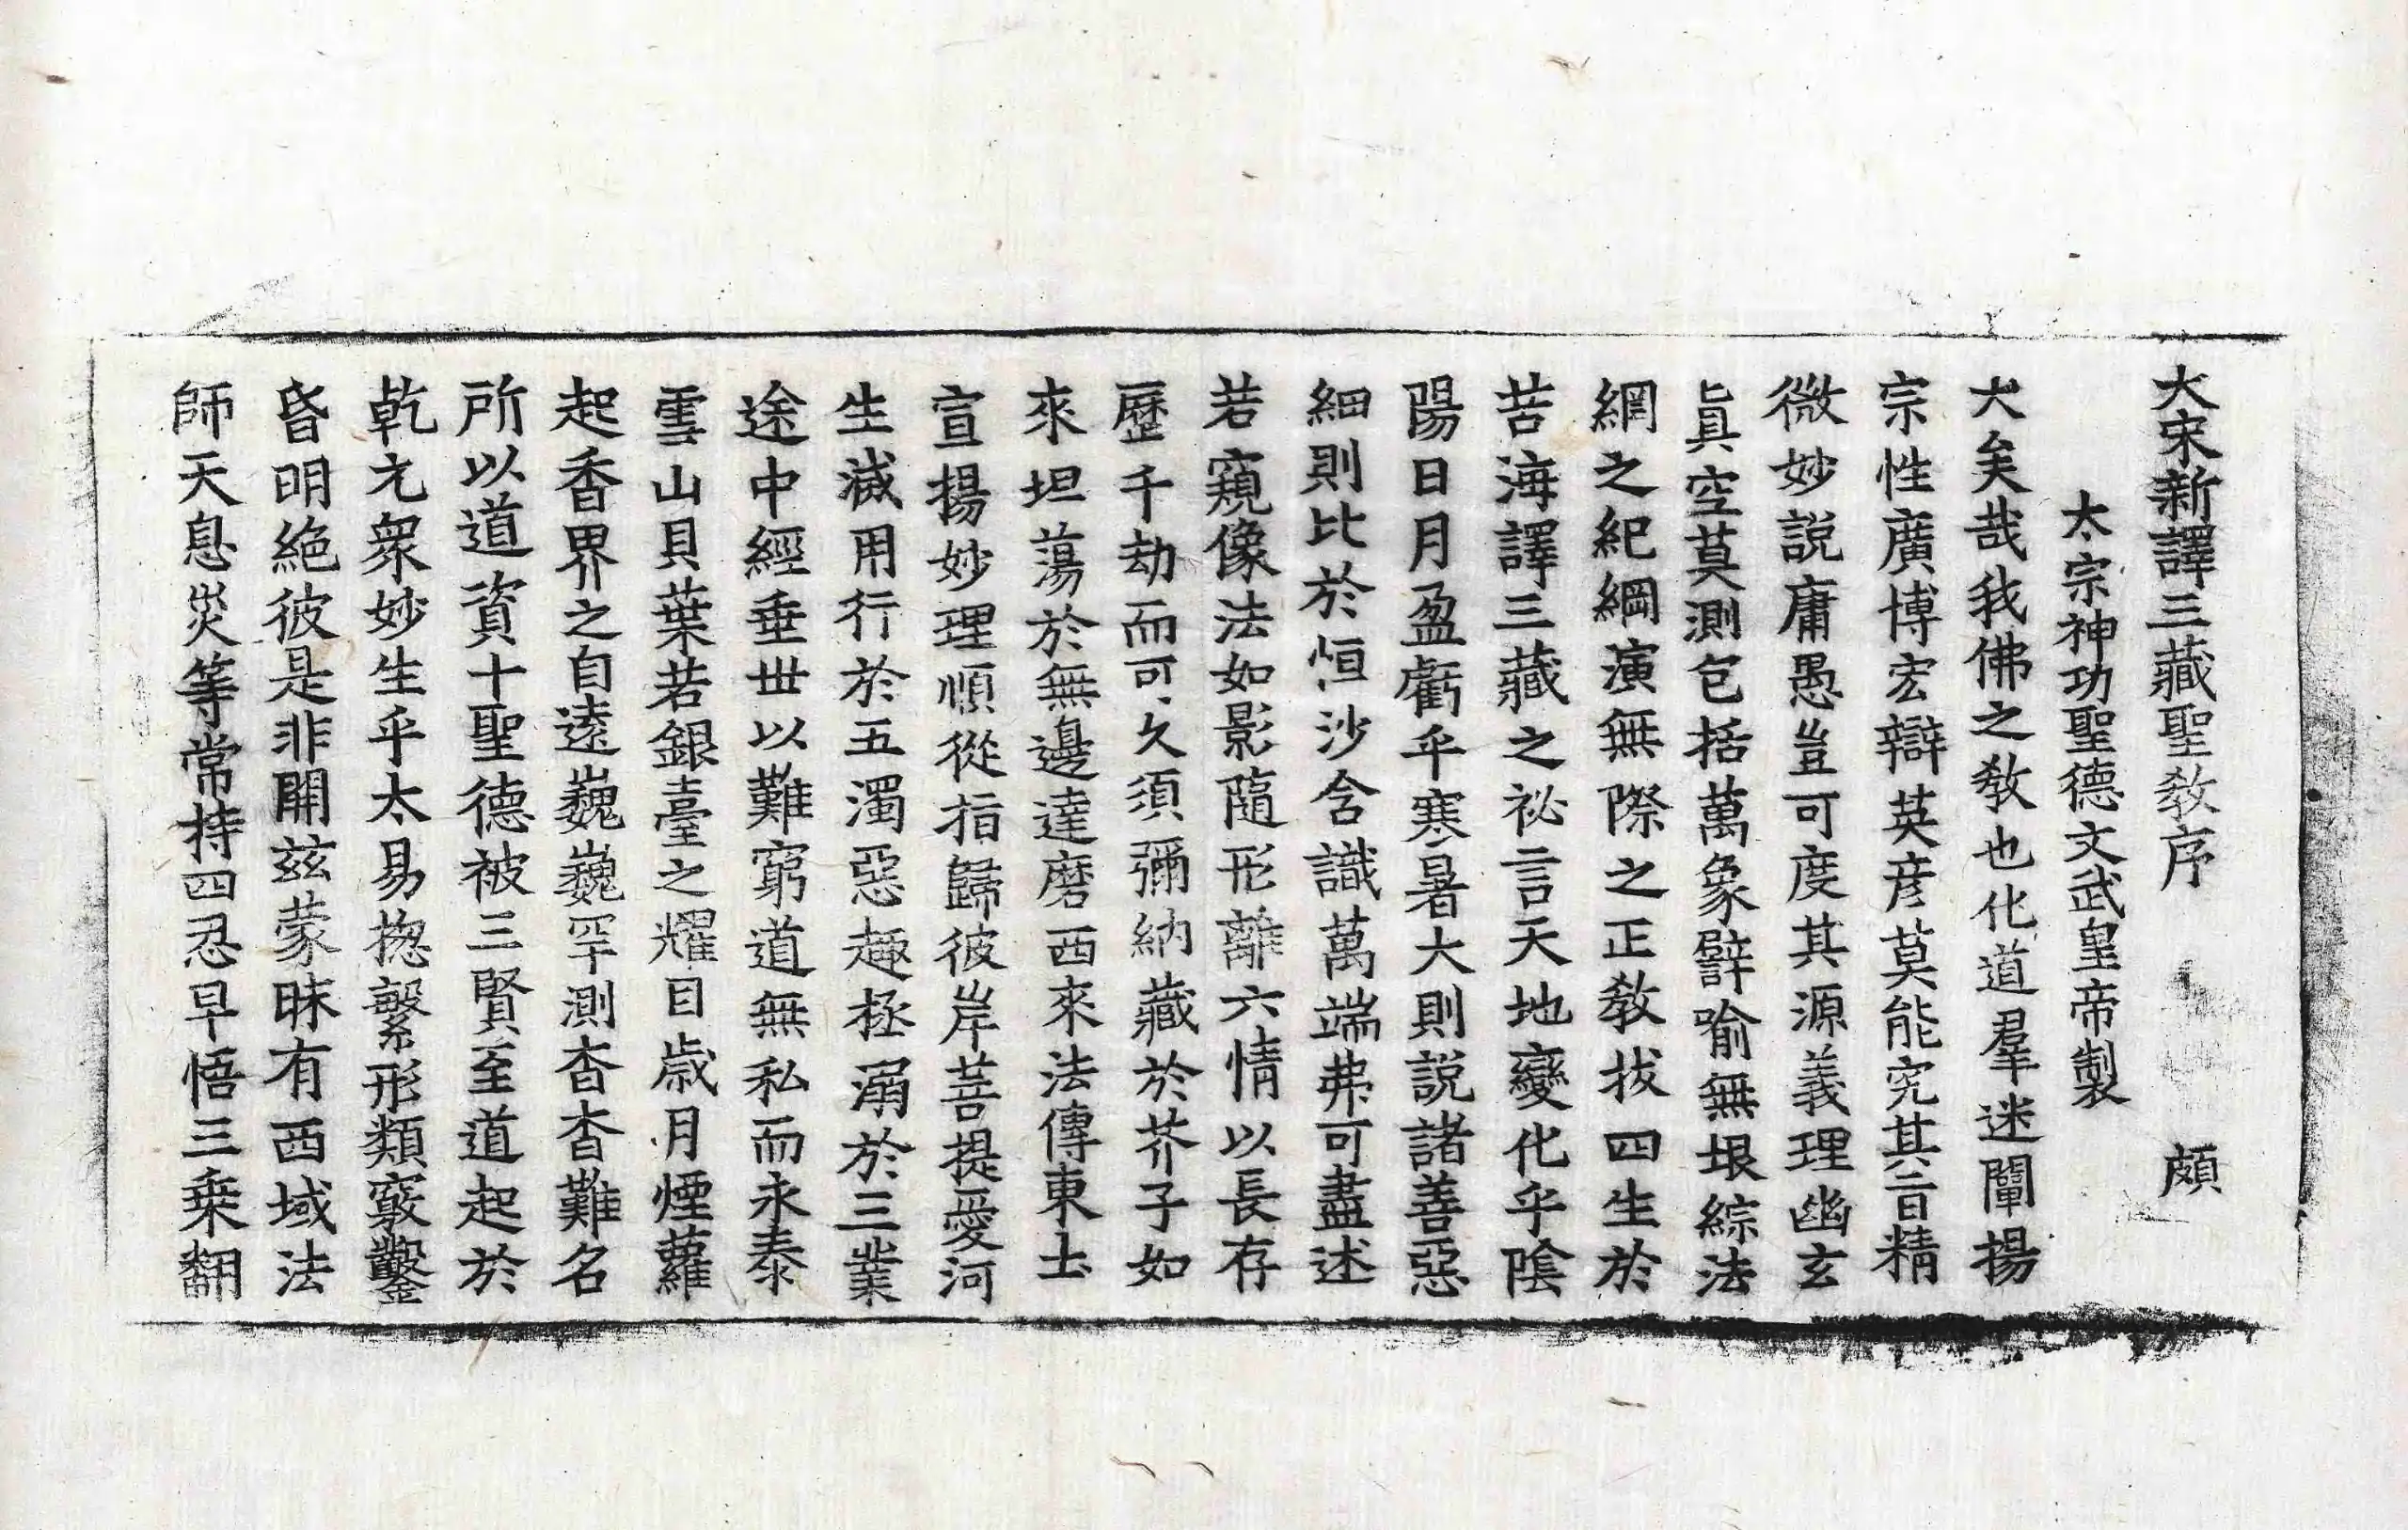 大宋新譯三藏聖敎序 頗
太宗神功聖德文武皇帝製
大矣哉我佛之敎也化道羣迷闡揚
宗性廣博宏辯英彦莫能究其旨精
微妙說庸愚豈可度其源義理幽玄
眞空莫測包括萬象譬喻無垠綜法
網之紀綱演無際之正敎拔四生於
苦海譯三藏之祕言天地變化乎陰
陽日月盈虧乎寒暑大則說諸善惡
細則比於恒沙含識萬端弗可盡述
若窺像法如影隨形離六情以長存
歷千劫而可久須彌納藏於芥子如
來坦蕩於無邊達磨西來法傳東土
宣揚妙理順從指歸彼岸菩提愛河
生滅用行於五濁惡趣拯溺於三業
途中經垂世以難窮道無私而永泰
雪山貝葉若銀臺之耀目歲月煙蘿
起香界之自遠巍巍罕測杳杳難名
所以道資十聖德被三賢至道起於
乾元衆妙生乎太易揔繫形類竅鑿
昏明絶彼是非開兹蒙昧有西域法
師天息災等常持四忍早悟三乗翻